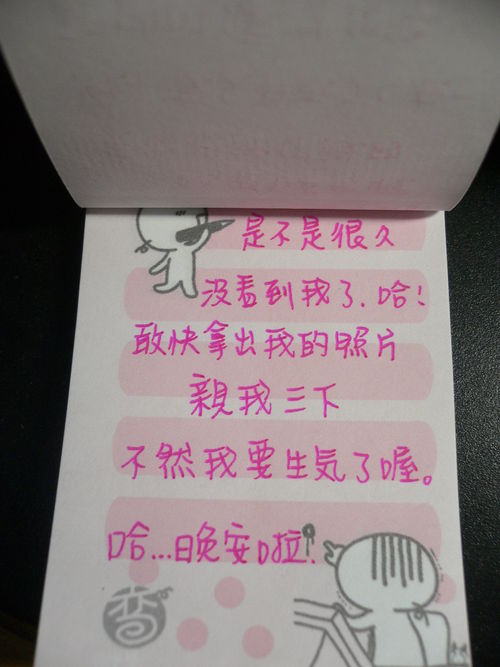 是不是很久
沒看到我了.哈!
敢快拿出我的照片
親我三下
不然我要生気了喔。
哈...晚安啦!